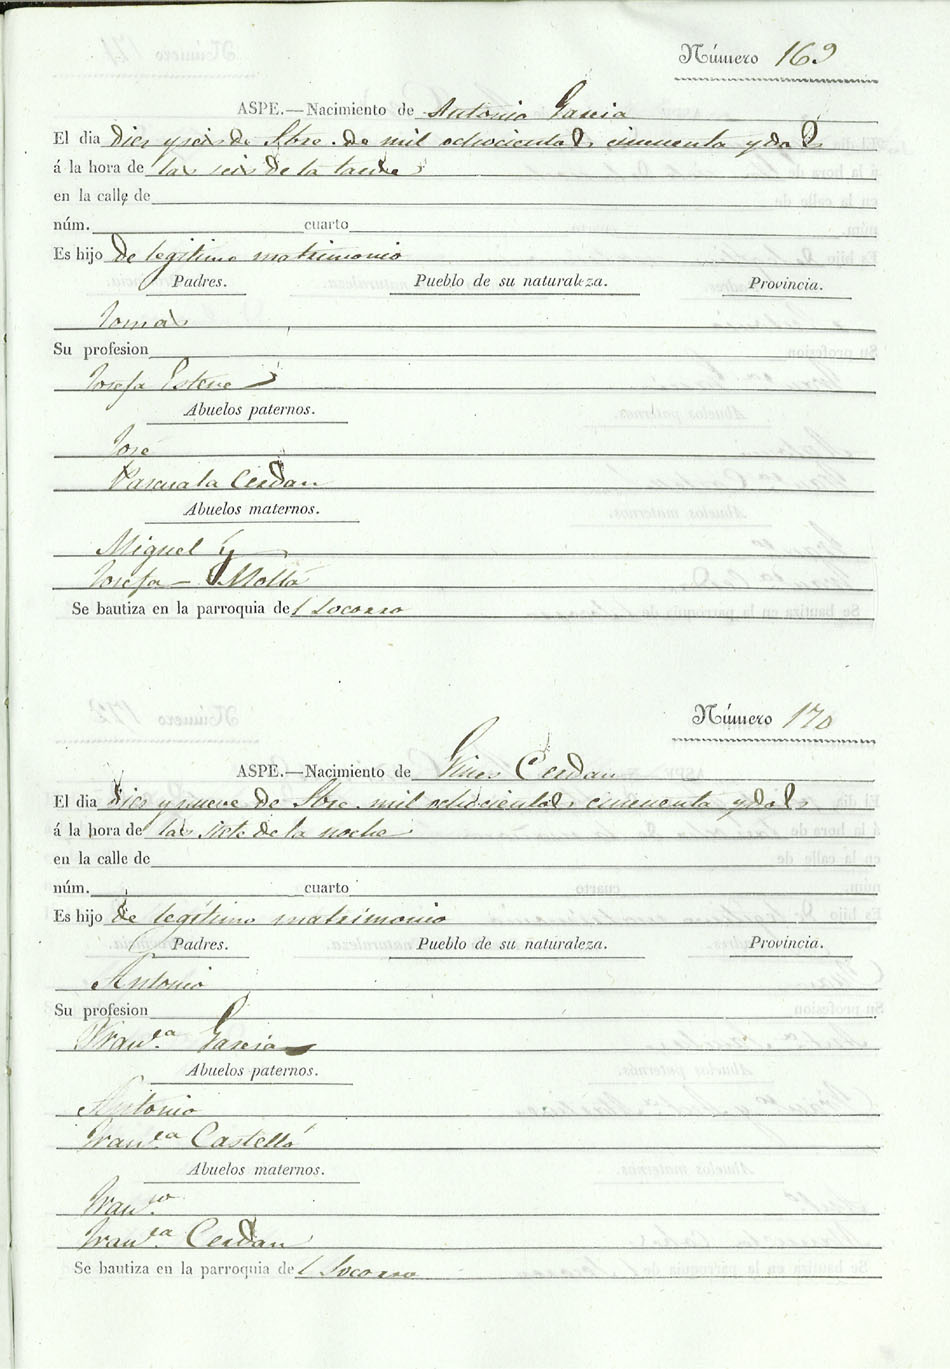 Número 169
ASPE.—Nacimiento de Antonio Garcia
El dia Diez y seis de Sbre. de mil ochocientos cincuenta y dos
á la hora de las seis de la tarde
en la calle de
núm. cuarto
Es hijo de legitimo matrimonio
Padres. Pueblo de su naturaleza. Provincia.
Tomás
Su profesion
Josefa Esteve
Abuelos paternos.
José
Pascuala Cerdan
Abuelos maternos.
Miguel y
Josefa - Mollá
Se bautiza en la parroquia del Socorro
Número 170
ASPE.—Nacimiento de Gines Cerdan
El dia Diez y nueve de Sbre. mil ochocientos cincuenta y dos
á la hora de las siete de la noche
en la calle de
núm. cuarto
Es hijo de legítimo matrimonio
Padres. Pueblo de su naturaleza. Provincia.
Antonio
Su profesion
Franca. Garcia
Abuelos paternos.
Antonio
Franca. Castelló
Abuelos maternos.
Franco.
Franca. Cerdan
Se bautiza en la parroquia del Socorro